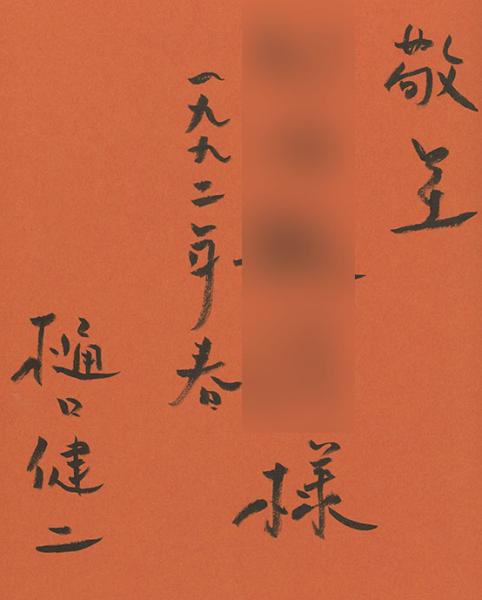 敬呈
様
一九九二年春
樋口健二